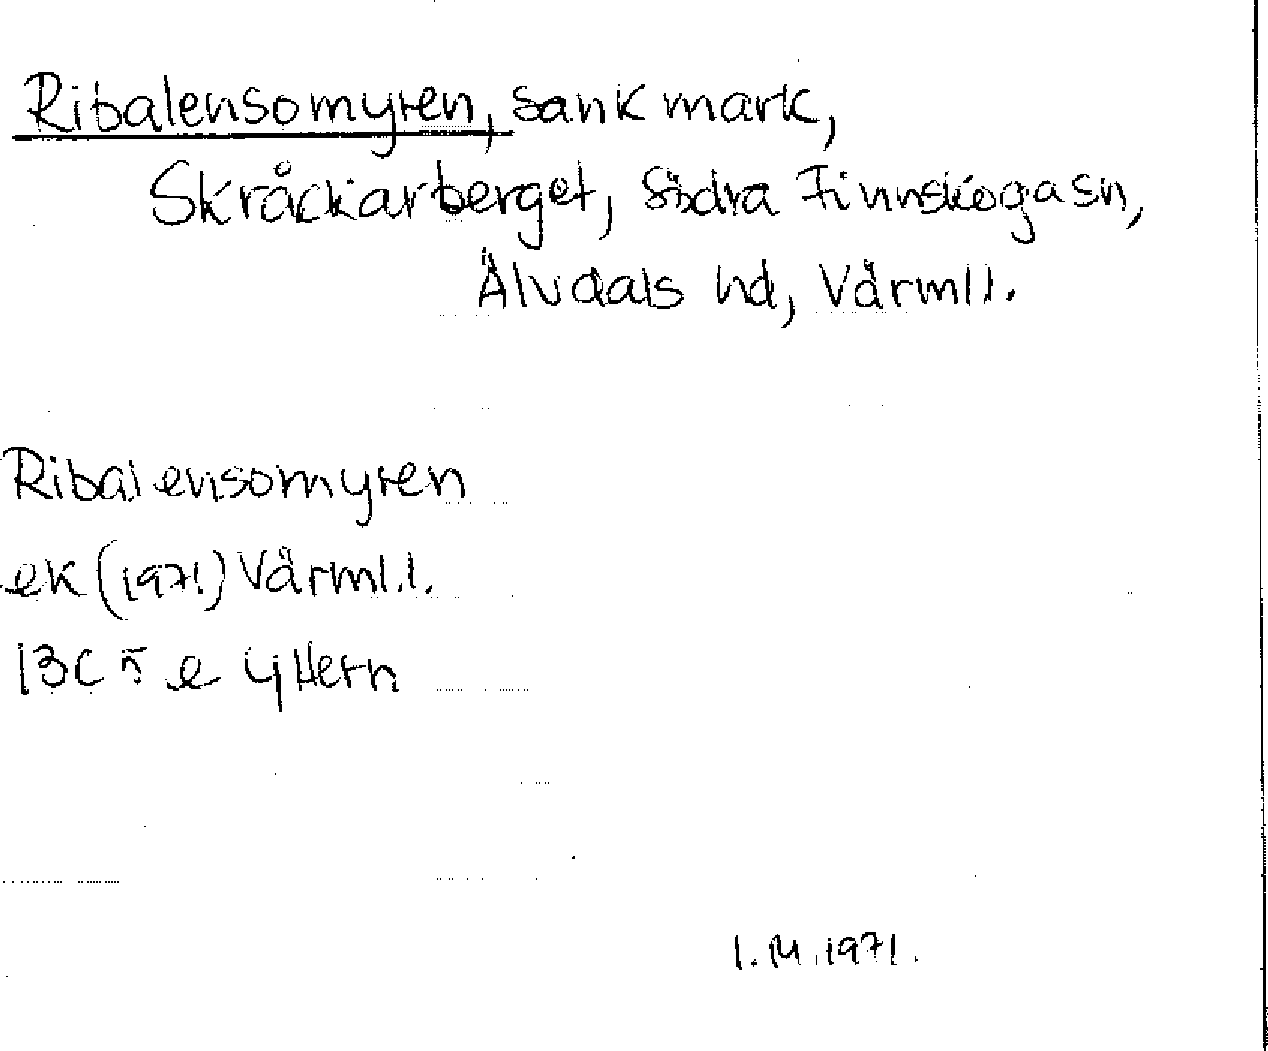 Ribalensomyren, sank mark,
Skråckarberget, Södra Finnskoga sn,
Älvdals hd, Värml l.
Ribalensomyren
ek (1971) Värml. l.
13C 5 e
1. M. 1971.